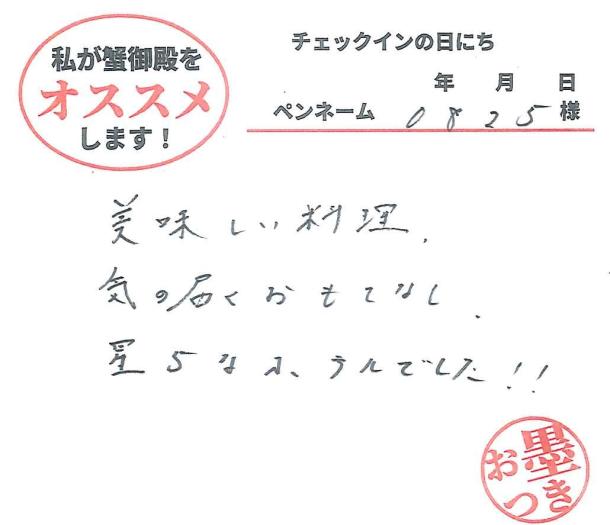 私が蟹御殿を
オススメ
します！
チェックインの日にち
年 月 日
ペンネーム 0825 様
美味しい料理、
気の届くおもてなし、
星5なホテルでした!!
お墨つき